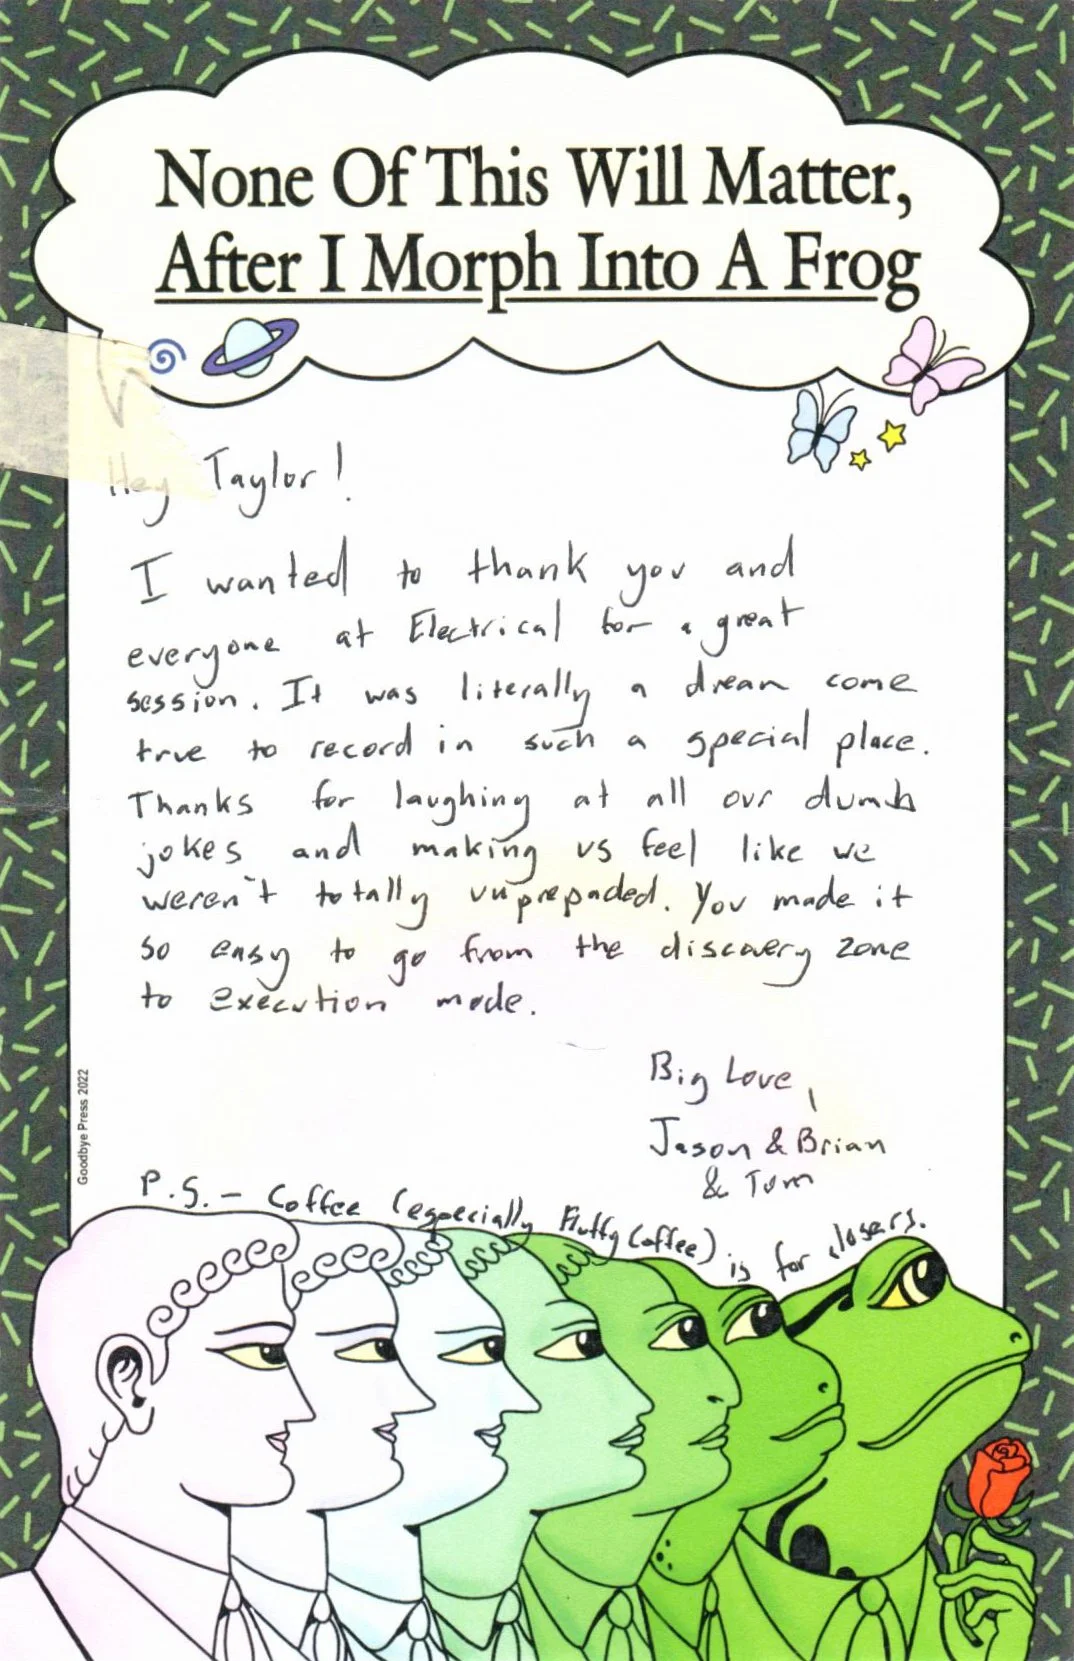 None Of This Will Matter,
After I Morph Into A Frog
Hey Taylor!
I wanted to thank you and
everyone at Electrical for a great
session. It was literally a dream come
true to record in such a special place.
Thanks for laughing at all our dumb
jokes and making us feel like we
weren't totally unprepaded. You made it
so easy to go from the discovery zone
to execution mode.
Big Love,
Jason & Brian
& Tom
Goodbye Press 2022
P.S. - Coffee (especially Fluffy Coffee) is for closers.